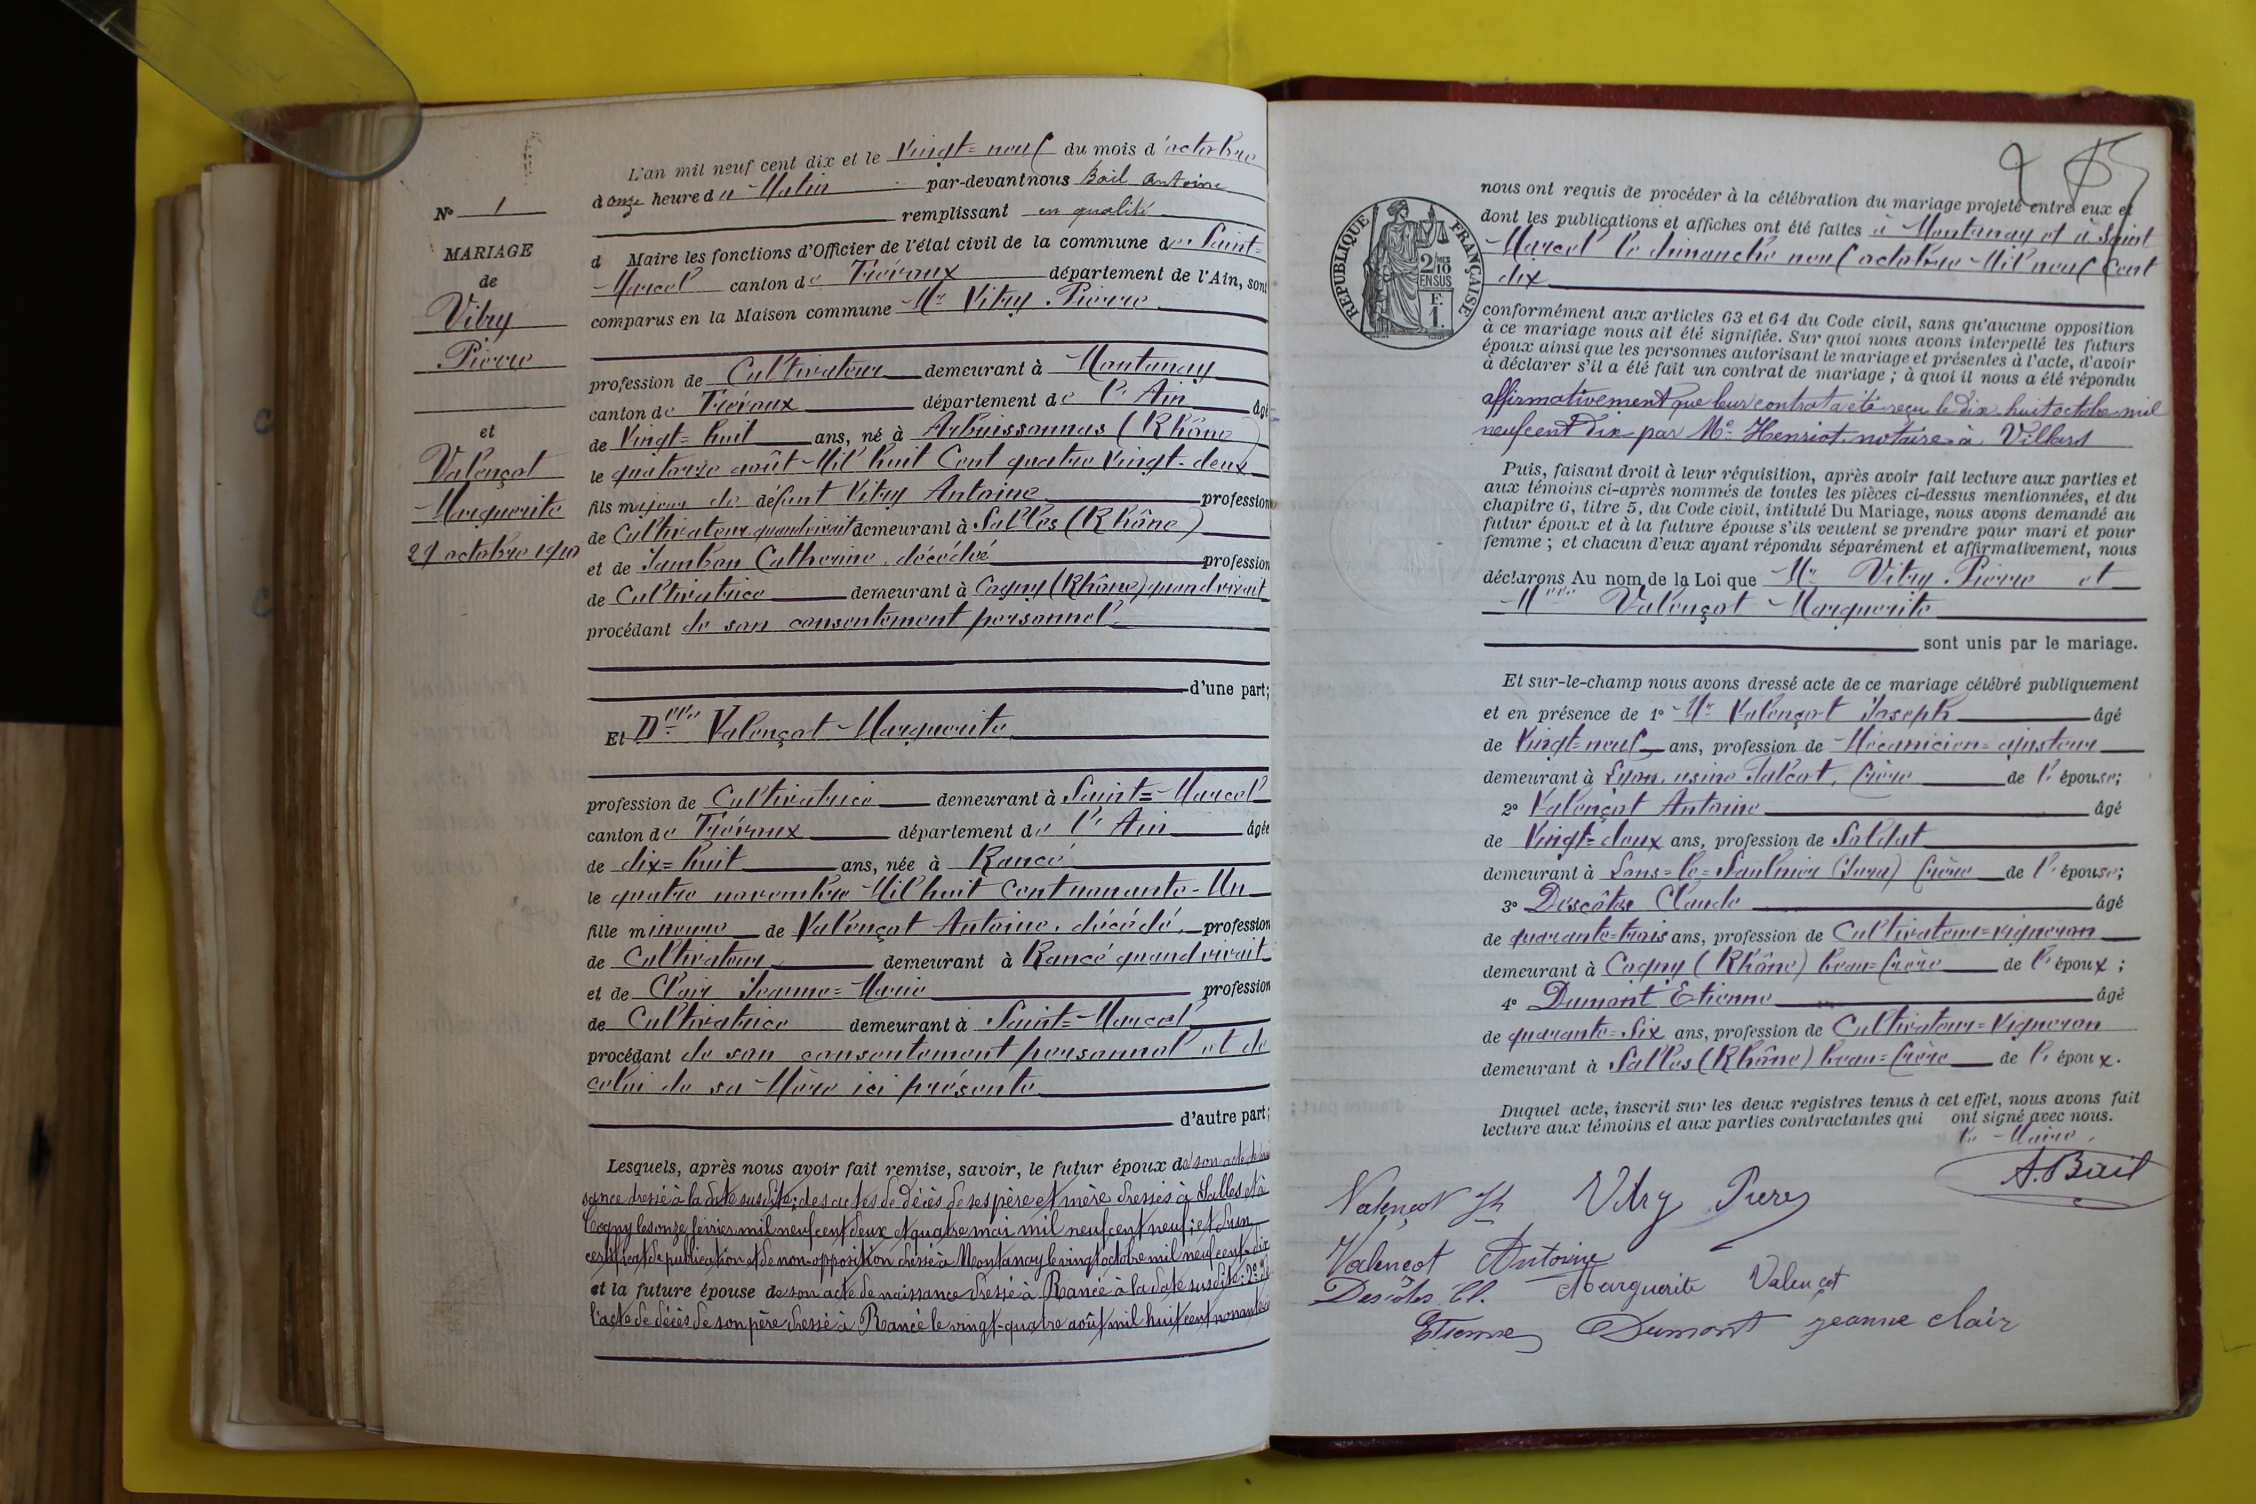 L'an mil neuf cent dix et le Vingt=neuf du mois d'octobre
d onze heure du Matin par-devant nous Bail Antoine
remplissant en qualité
d Maire les fonctions d'Officier de l'état civil de la commune de Saint=
Marcel canton de Trévoux département de l'Ain, sont
comparus en la Maison commune Mr Vitry Pierre
profession de Cultivateur demeurant à Montanay
canton de Trévoux département de l'Ain âgé
de Vingt=huit ans, né à Arbuissonnas (Rhône)
le quatorze août Mil huit Cent quatre Vingt-deux
fils majeur de défunt Vitry Antoine profession
de Cultivateur quand vivait demeurant à Salles (Rhône)
et de Jambon Catherine, décédée profession
de Cultivatrice demeurant à Cogny (Rhône) quand vivait
procédant de son consentement personnel
d'une part;
Et Delle Valençot Marguerite
profession de Cultivatrice demeurant à Saint=Marcel
canton de Trévoux département de l'Ain âgée
de dix=huit ans, née à Rancé
le quatre novembre Mil huit Cent nonante-Un
fille mineure de Valençot Antoine, décédé, profession
de Cultivateur demeurant à Rancé quand vivait
et de Clair Jeanne=Marie profession
de Cultivatrice demeurant à Saint=Marcel
procédant de son consentement personnel et de
celui de sa Mère ici présente
d'autre part;
Lesquels, après nous avoir fait remise, savoir, le futur époux de son acte de nais
sance dressé à la date susdite; des actes de décès de ses père et mère dressés à Salles et à
Cogny les onze février mil neuf cent deux et quatre mai mil neuf cent neuf; et d'un
certificat de publication et de non-opposition dressé à Montanay le vingt octobre mil neuf cent dix
et la future épouse de son acte de naissance dressé à Rancé à la date susdite; 2° de
l'acte de décès de son père dressé à Rancé le vingt-quatre août mil huit cent nonante
N° 1
MARIAGE
de
Vitry
Pierre
et
Valençot
Marguerite
29 octobre 1910
nous ont requis de procéder à la célébration du mariage projeté entre eux et
dont les publications et affiches ont été faites à Montanay et à Saint
Marcel le dimanche neuf octobre Mil neuf Cent
dix
RÉPUBLIQUE FRANÇAISE
2/10
EN SUS
F.
1.
conformément aux articles 63 et 64 du Code civil, sans qu'aucune opposition
à ce mariage nous ait été signifiée. Sur quoi nous avons interpellé les futurs
époux ainsi que les personnes autorisant le mariage et présentes à l'acte, d'avoir
à déclarer s'il a été fait un contrat de mariage; à quoi il nous a été répondu
affirmativement que leur contrat a été reçu le dix-huit octobre mil
neuf cent dix par Me Henriot notaire à Villars
Puis, faisant droit à leur réquisition, après avoir fait lecture aux parties et
aux témoins ci-après nommés de toutes les pièces ci-dessus mentionnées, et du
chapitre 6, titre 5, du Code civil, intitulé Du Mariage, nous avons demandé au
futur époux et à la future épouse s'ils veulent se prendre pour mari et pour
femme; et chacun d'eux ayant répondu séparément et affirmativement, nous
déclarons Au nom de la Loi que Mr Vitry Pierre et
Melle Valençot Marguerite
sont unis par le mariage.
Et sur-le-champ nous avons dressé acte de ce mariage célébré publiquement
et en présence de 1° Mr Valençot Joseph âgé
de Vingt=neuf ans, profession de Mécanicien=ajusteur
demeurant à Lyon, usine frère de l'épouse;
2° Valençot Antoine âgé
de Vingt=deux ans, profession de Soldat
demeurant à Lons=le=Saulnier (Jura) frère de l'épouse;
3° Descôtes Claude âgé
de quarante=trois ans, profession de Cultivateur=vigneron
demeurant à Cogny (Rhône) beau=frère de l'époux;
4° Dumont Etienne âgé
de quarante=six ans, profession de Cultivateur=Vigneron
demeurant à Salles (Rhône) beau=frère de l'époux.
Duquel acte, inscrit sur les deux registres tenus à cet effet, nous avons fait
lecture aux témoins et aux parties contractantes qui ont signé avec nous.
Le Maire,
A. Bail
Valençot Jh Vitry Pierre
Valencot Antoine
Descôtes Cl. Marguerite Valençot
Etienne Dumont jeanne clair